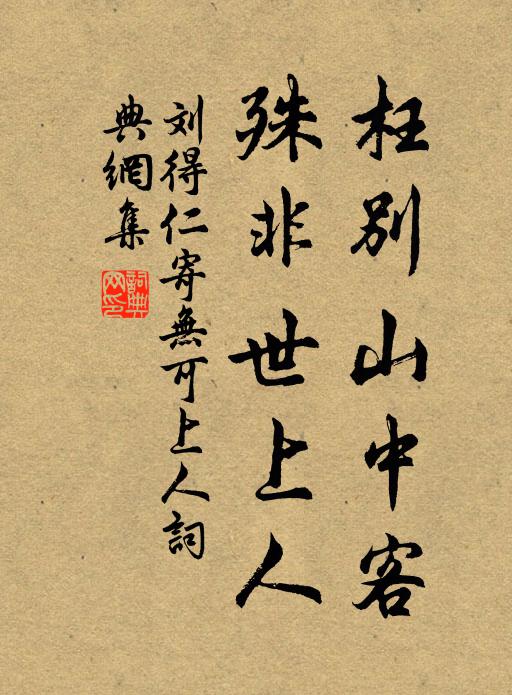 枉别山中客
殊非世上人
刘得仁寄無可上人詞
典網集
詞典
网印